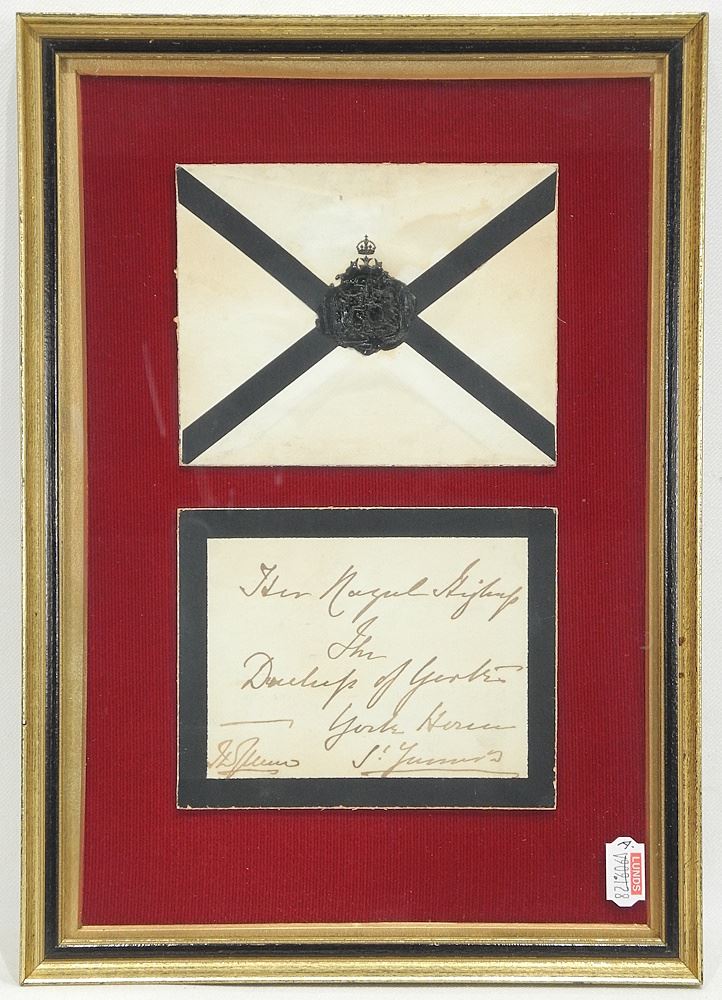 Her Royal Highness
The
Duchess of York
York House
St. James's
LUNDS